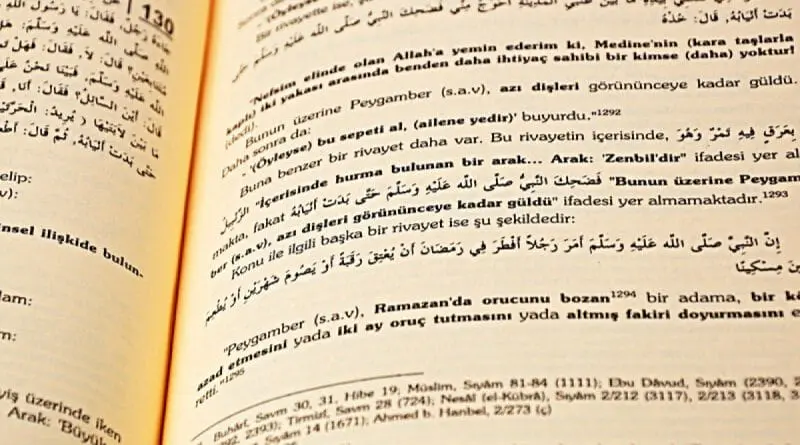 130
جَاءَهُ رَجُلٌ، فَقَالَ: يَا رَسُولَ اللهِ
اللهِ صَلَّى اللَّه عَلَيْهِ وَسَلَّمَ:
قَالَ: لاَ، فَقَالَ: فَهَلْ
عَلَيْهِ وَسَلَّمَ، فَبَيْنَا نَحْنُ عَلَى
قَالَ: أَيْنَ السَّائِلُ؟ فَقَالَ: أَنَا،
مَا بَيْنَ لاَبَتَيْهَا (يُرِيدُ: الْحَرَّتَيْنِ
حَتَّى بَدَتْ أَنْيَابُهُ، ثُمَّ قَالَ:
elip:
v):
nsel ilişkide bulun-
lam:
m:
yiş üzerinde iken
Arak: 'Büyük
Bu rivayette ise,
فَضَحِكَ النَّبِيُّ صَلَّى اللَّه عَلَيْهِ وَسَلَّمَ حَتَّى
بَدَتْ أَنْيَابُهُ، قَالَ: خُذْهُ
"Nefsim elinde olan Allah'a yemin ederim ki, Medine'nin (kara taşlarla
kaplı) iki yakası arasında benden daha ihtiyaç sahibi bir kimse (daha) yoktur!
(dedi).
Bunun üzerine Peygamber (s.a.v), azı dişleri görününceye kadar güldü.
Daha sonra da:
"'(Öyleyse) bu sepeti al, (ailene yedir)' buyurdu."1292
Buna benzer bir rivayet daha var. Bu rivayetin içerisinde, بِعَرَقٍ فِيهِ تَمْرٌ وَهُوَ
الزَّبِيلُ "İçerisinde hurma bulunan bir arak... Arak: 'Zenbil'dir" ifadesi yer al-
makta, fakat فَضَحِكَ النَّبِيُّ صَلَّى اللَّه عَلَيْهِ وَسَلَّمَ حَتَّى بَدَتْ أَنْيَابُهُ "Bunun üzerine Peygam-
ber (s.a.v), azı dişleri görününceye kadar güldü" ifadesi yer almamaktadır.1293
Konu ile ilgili başka bir rivayet ise şu şekildedir:
إِنَّ النَّبِيَّ صَلَّى اللَّه عَلَيْهِ وَسَلَّمَ أَمَرَ رَجُلاً أَفْطَرَ فِي رَمَضَانَ أَنْ يُعْتِقَ رَقَبَةً أَوْ يَصُومَ شَهْرَيْنِ أَوْ يُطْعِمَ
مِسْكِينًا
"Peygamber (s.a.v), Ramazan'da orucunu bozan1294 bir adama, bir kö
azad etmesini yada iki ay oruç tutmasını yada altmış fakiri doyurmasını e
retti."1295
Buhârî, Savm 30, 31, Hibe 19; Müslim, Sıyâm 81-84 (1111); Ebu Dâvud, Sıyâm (2390, 2
392, 2393); Tirmizî, Savm 28 (724); Nesâî (el-Kübrâ), Sıyâm 2/212 (3117), 2/213 (3118, 3
Sıyâm 14 (1671); Ahmed b. Hanbel, 2/273 (ç)